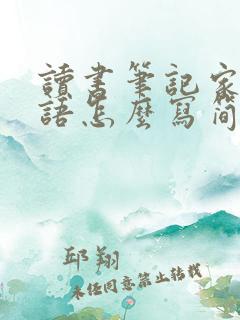 讀書筆記家
語怎麼寫簡
邱翔
未經同意禁止轉載